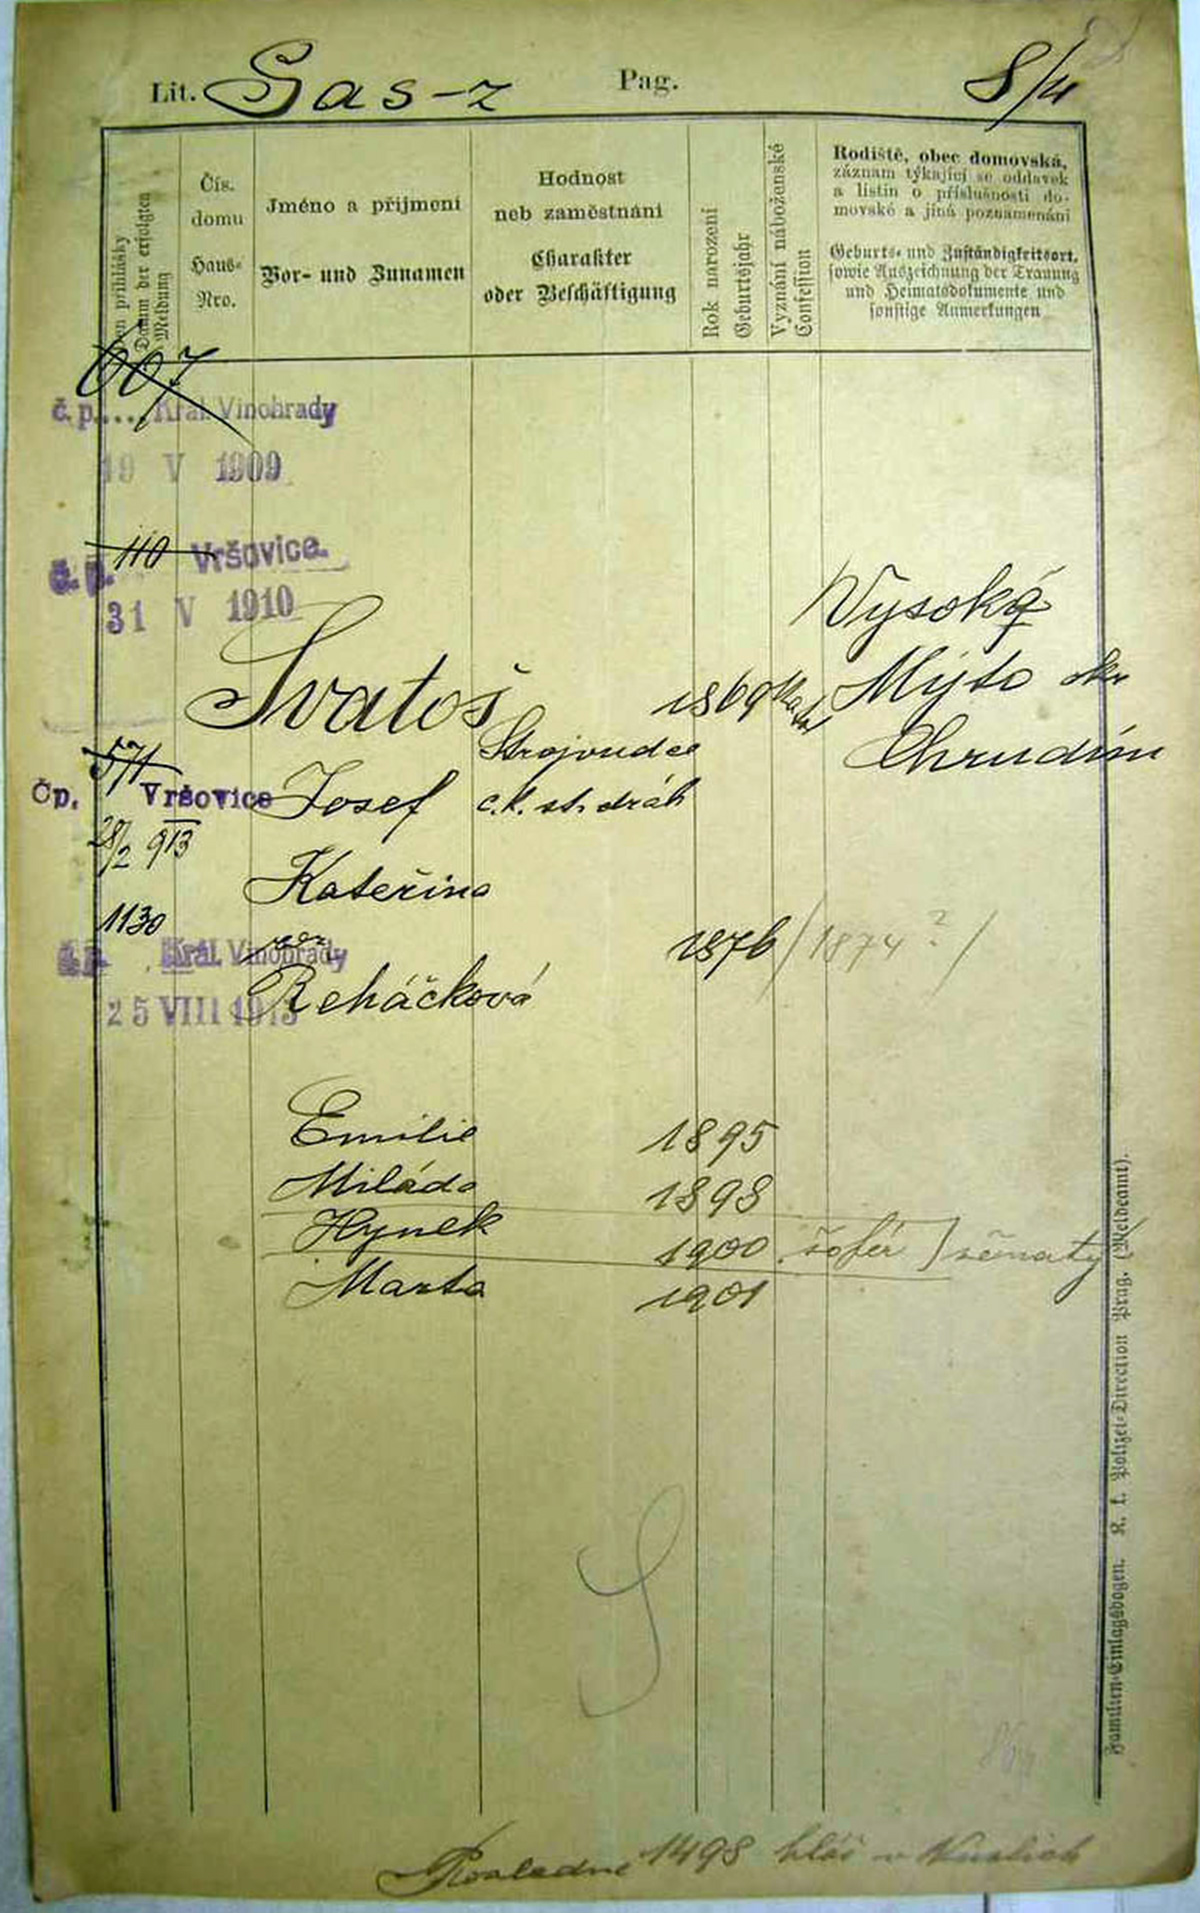 Lit. Sas-z Pag. 8/4
Den přihlášky
Datum der erfolgten
Meldung
Čís.
domu
Haus-
Nro.
Jméno a příjmení
Vor- und Zunamen
Hodnost
neb zaměstnání
Charakter
oder Beschäftigung
Rok narození
Geburtsjahr
Vyznání náboženské
Confession
Rodiště, obec domovská,
záznam týkající se oddavek
a listin o příslušnosti do-
movské a jiná poznamenání
Geburts- und Zuständigkeitsort,
sowie Auszeichnung der Trauung
und Heimatsdokumente und
sonstige Anmerkungen
607
č. p. .... Král. Vinohrady
19 V 1909
č. p. 110 Vršovice.
31 V 1910
Vysoké
Svatoš 1869 kat Mýto okr
Chrudim
571 Strojvudce
Čp. Vršovice Josef c.k. st. dráh
28/2 913
Kateřina
1130
č. p. Král. Vinohrady roz 1876 / 1874 ? /
25 VIII 1913 Reháčková
Emilie 1895
Miláda 1898
Hynek 1900 šofér / ženatý
Marta 1901
Posledně 1498 hláš v Nuslích
Familien-Einlagsbogen. K. k. Polizei-Direction Prag. (Meldeamt).